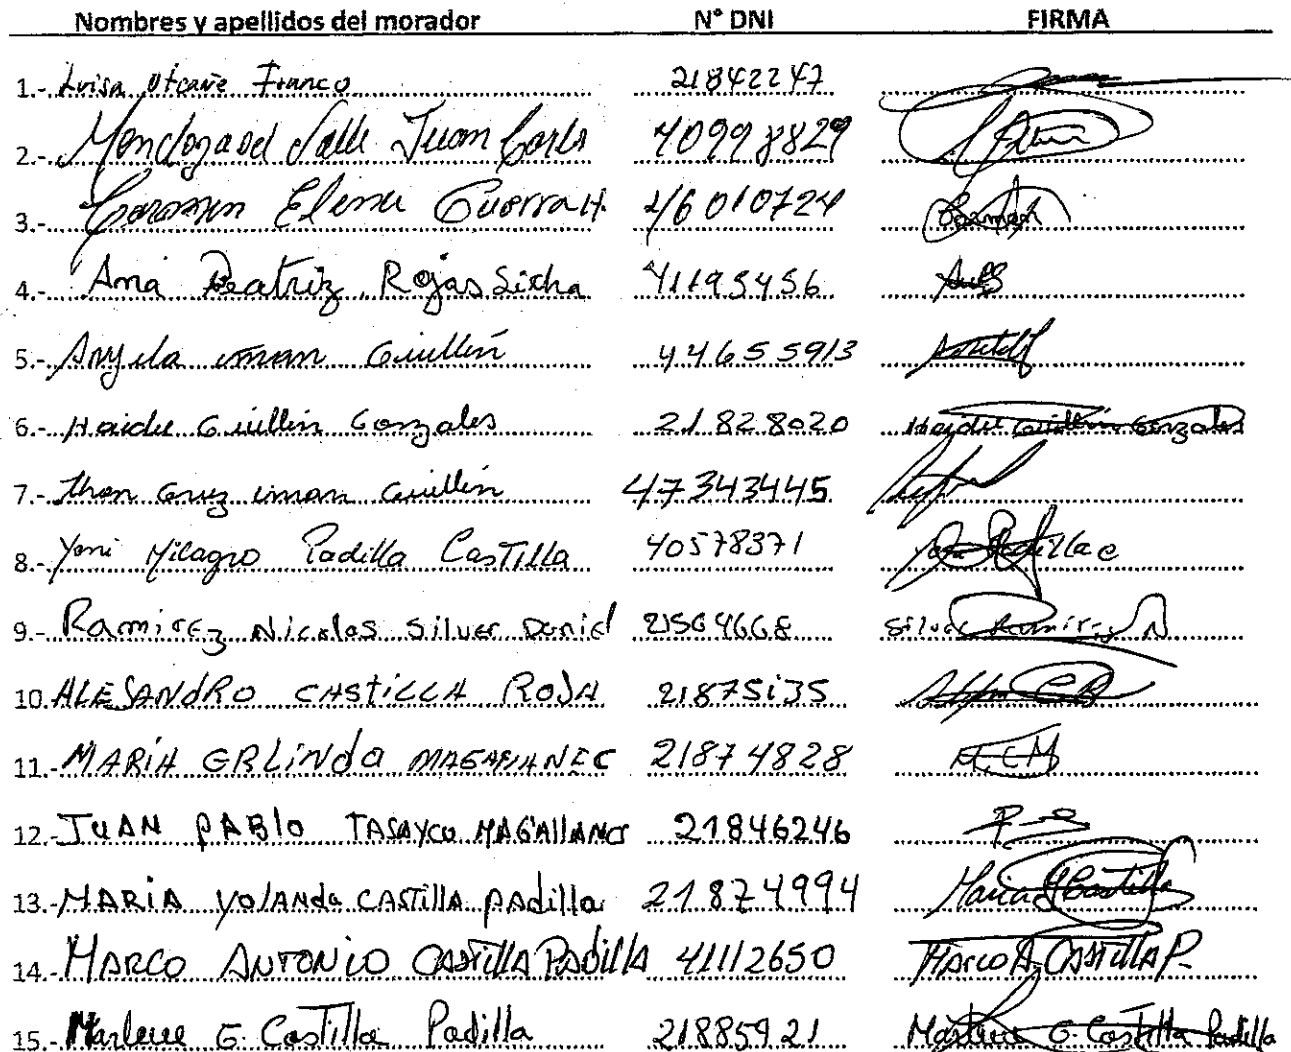 Nombres y apellidos del morador N° DNI FIRMA
1.- Luisa Franco 21842247
2.- Mendoza del Valle Juan Carls 40998829
3.- Carmen Elena Guerra H. 46010724 Carmen
4.- Ana Beatriz Rojas Sicha 41195456
5.- Angela iman Guillén 44655913
6.- Haidee Guillén Gonzales 21828020 Haidee Guillén Gonzales
7.- Jhon Cruz iman Guillén 47343445
8.- Yeni Milagro Padilla CasTilla 40578371 Padilla c
9.- Ramirez Nicolas Silver Daniel 21564668 Silver Ramirez N
10.- ALESANdRO CASTiLLA ROJA 21875135
11.- MARiA GRLiNda 21874828
12.- JUAN PABlo TASAYCO MAGAllANES 21846246
13.- MARiA YOlANda CASTillA PAdilla 21874994 Maria Y Castilla
14.- MARCO ANTONiO CASTillA PADillA 41112650 MARCO A. CASTillA P.
15.- Marlene G. Castilla Padilla 21885921 Marlene G. Castilla Padilla